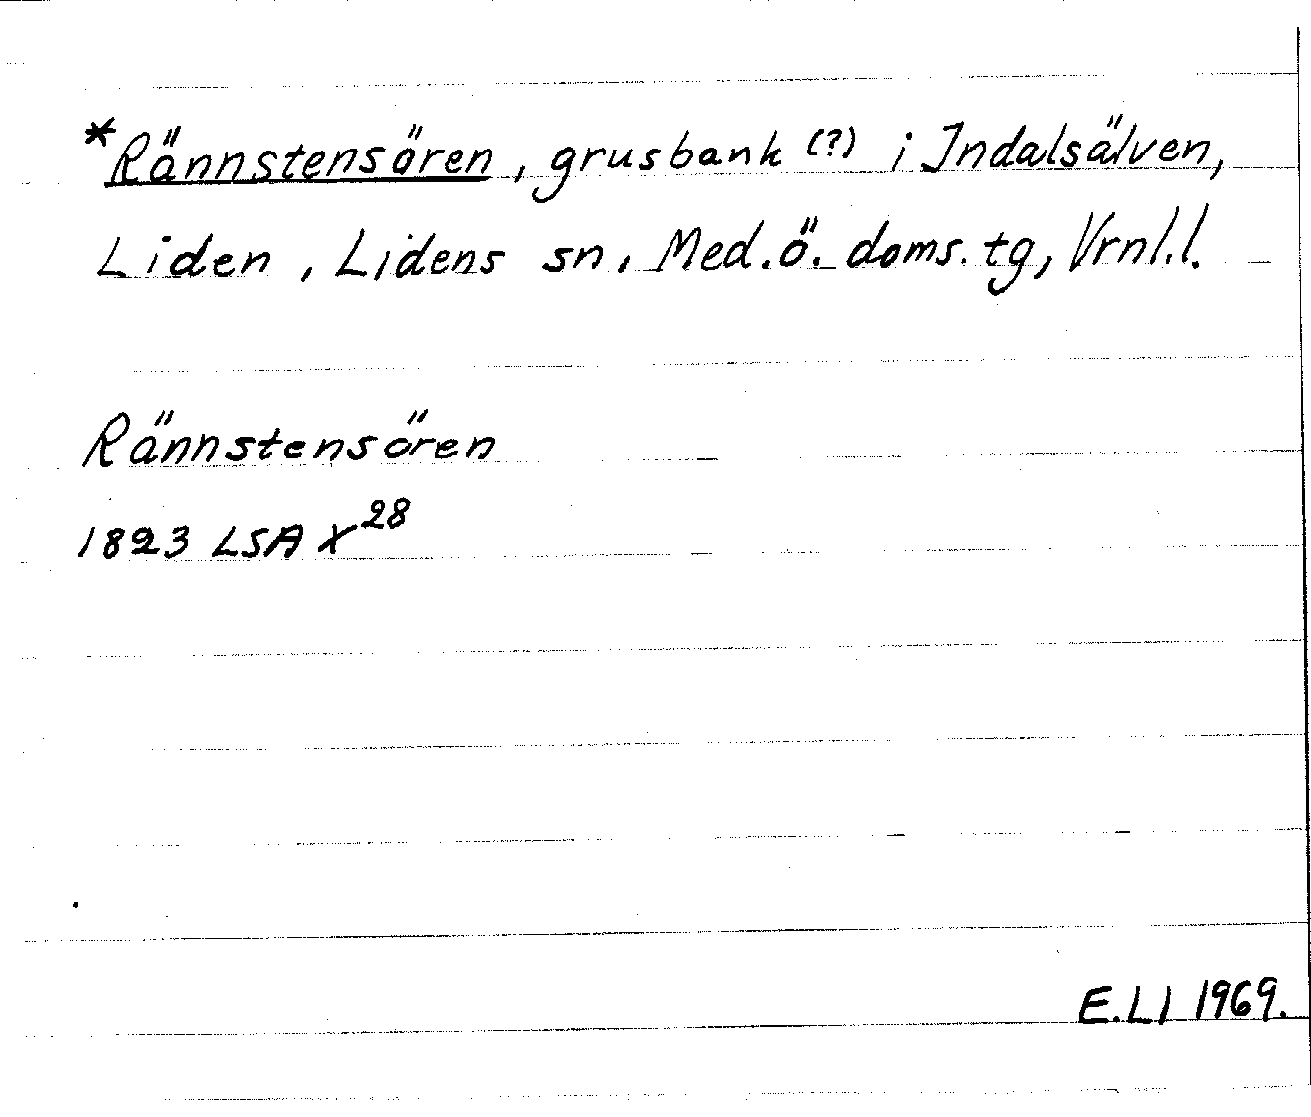 *Rännstensören, grusbank (?) i Indalsälven,
Liden, Lidens sn, Med.ö. doms.tg, Vrnl.l.
Rännstensören
1823 LSA X 28
E.LI 1969.